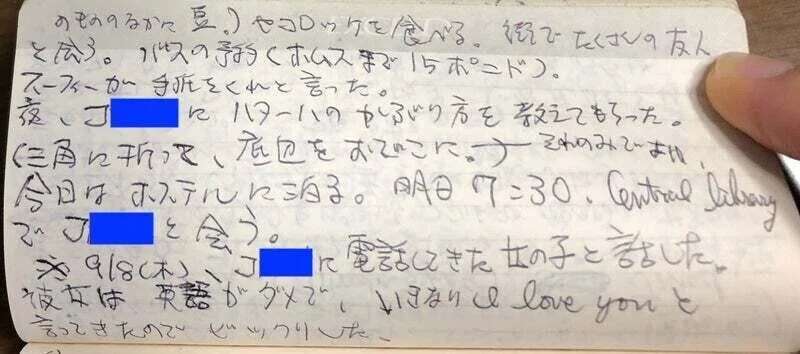 のもののなかに豆。)やコロッケを食べる。街でたくさんの友人
と会う。バスの予約(ホムスまで15ポンド)。
スーフィーが手紙をくれと言った。
夜、Jにハターハのかぶり方を教えてもらった。
(三角に折って、底辺をおでこに。)それのみでよい。
今日はホステルに泊る。明日7:30、Central library
でJと会う。
※9/8(木)、Jに電話してきた女の子と話した。
彼女は英語がダメで、いきなりI love youと
言ってきたのでビックリした。